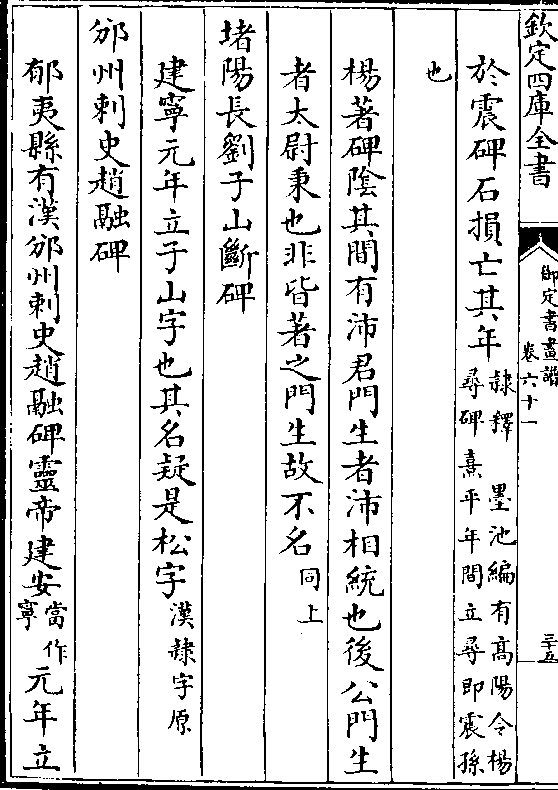 欽定四庫全書
御定書畫譜
卷六十一
三十五
於震碑石損亡其年隸釋 墨池編有高陽令楊
尋碑熹平年間立尋即震孫
也
楊著碑陰其間有沛君門生者沛相統也後公門生
者太尉秉也非皆著之門生故不名同上
堵陽長劉子山斷碑
建寧元年立子山字也其名疑是松字漢隸字原
邠州刺史趙融碑
郁夷縣有漢邠州刺史趙融碑靈帝建安當作寧元年立